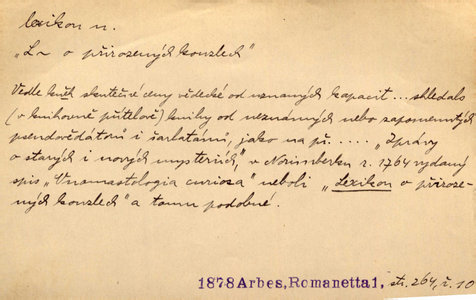 lexikon n.
„L~ o přirozených kouzlech"
Vedle knih skutečné ceny vědecké od uznaných kapacit ... shledalo
(v knihovně přítelově) knihy od neznámých nebo zapomenutých
pseudovědátorů i šarlatánů, jako na př. .... „Zprávy
o starých i nových mysteriích", v Norimberku r. 1764 vydaný
spis „Onomastologia curiosa" neboli „Lexikon o přiroze-
ných kouzlech" a tomu podobné.
1878 Arbes, Romanetta 1, str. 264, ř. 10